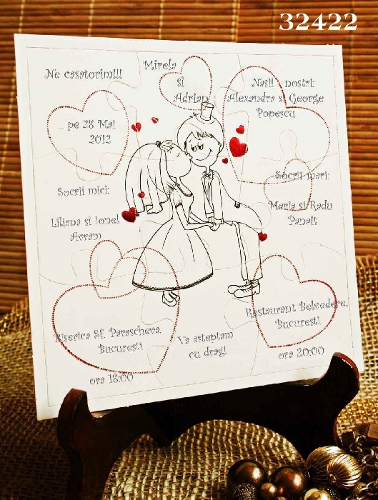 32422
Ne casatorim!!!
Mirela
si
Adrian
Nasii nostri:
Alexandra si George
Popescu
pe 28 Mai
2012
Socrii mici:
Liliana si Ionel
Avram
Socrii mari:
Maria si Radu
Panait
Biserica Sf. Parascheva,
Bucuresti
ora 18:00
Va asteptam
cu drag!
Restaurant Belvedere,
Bucuresti
ora 20:00